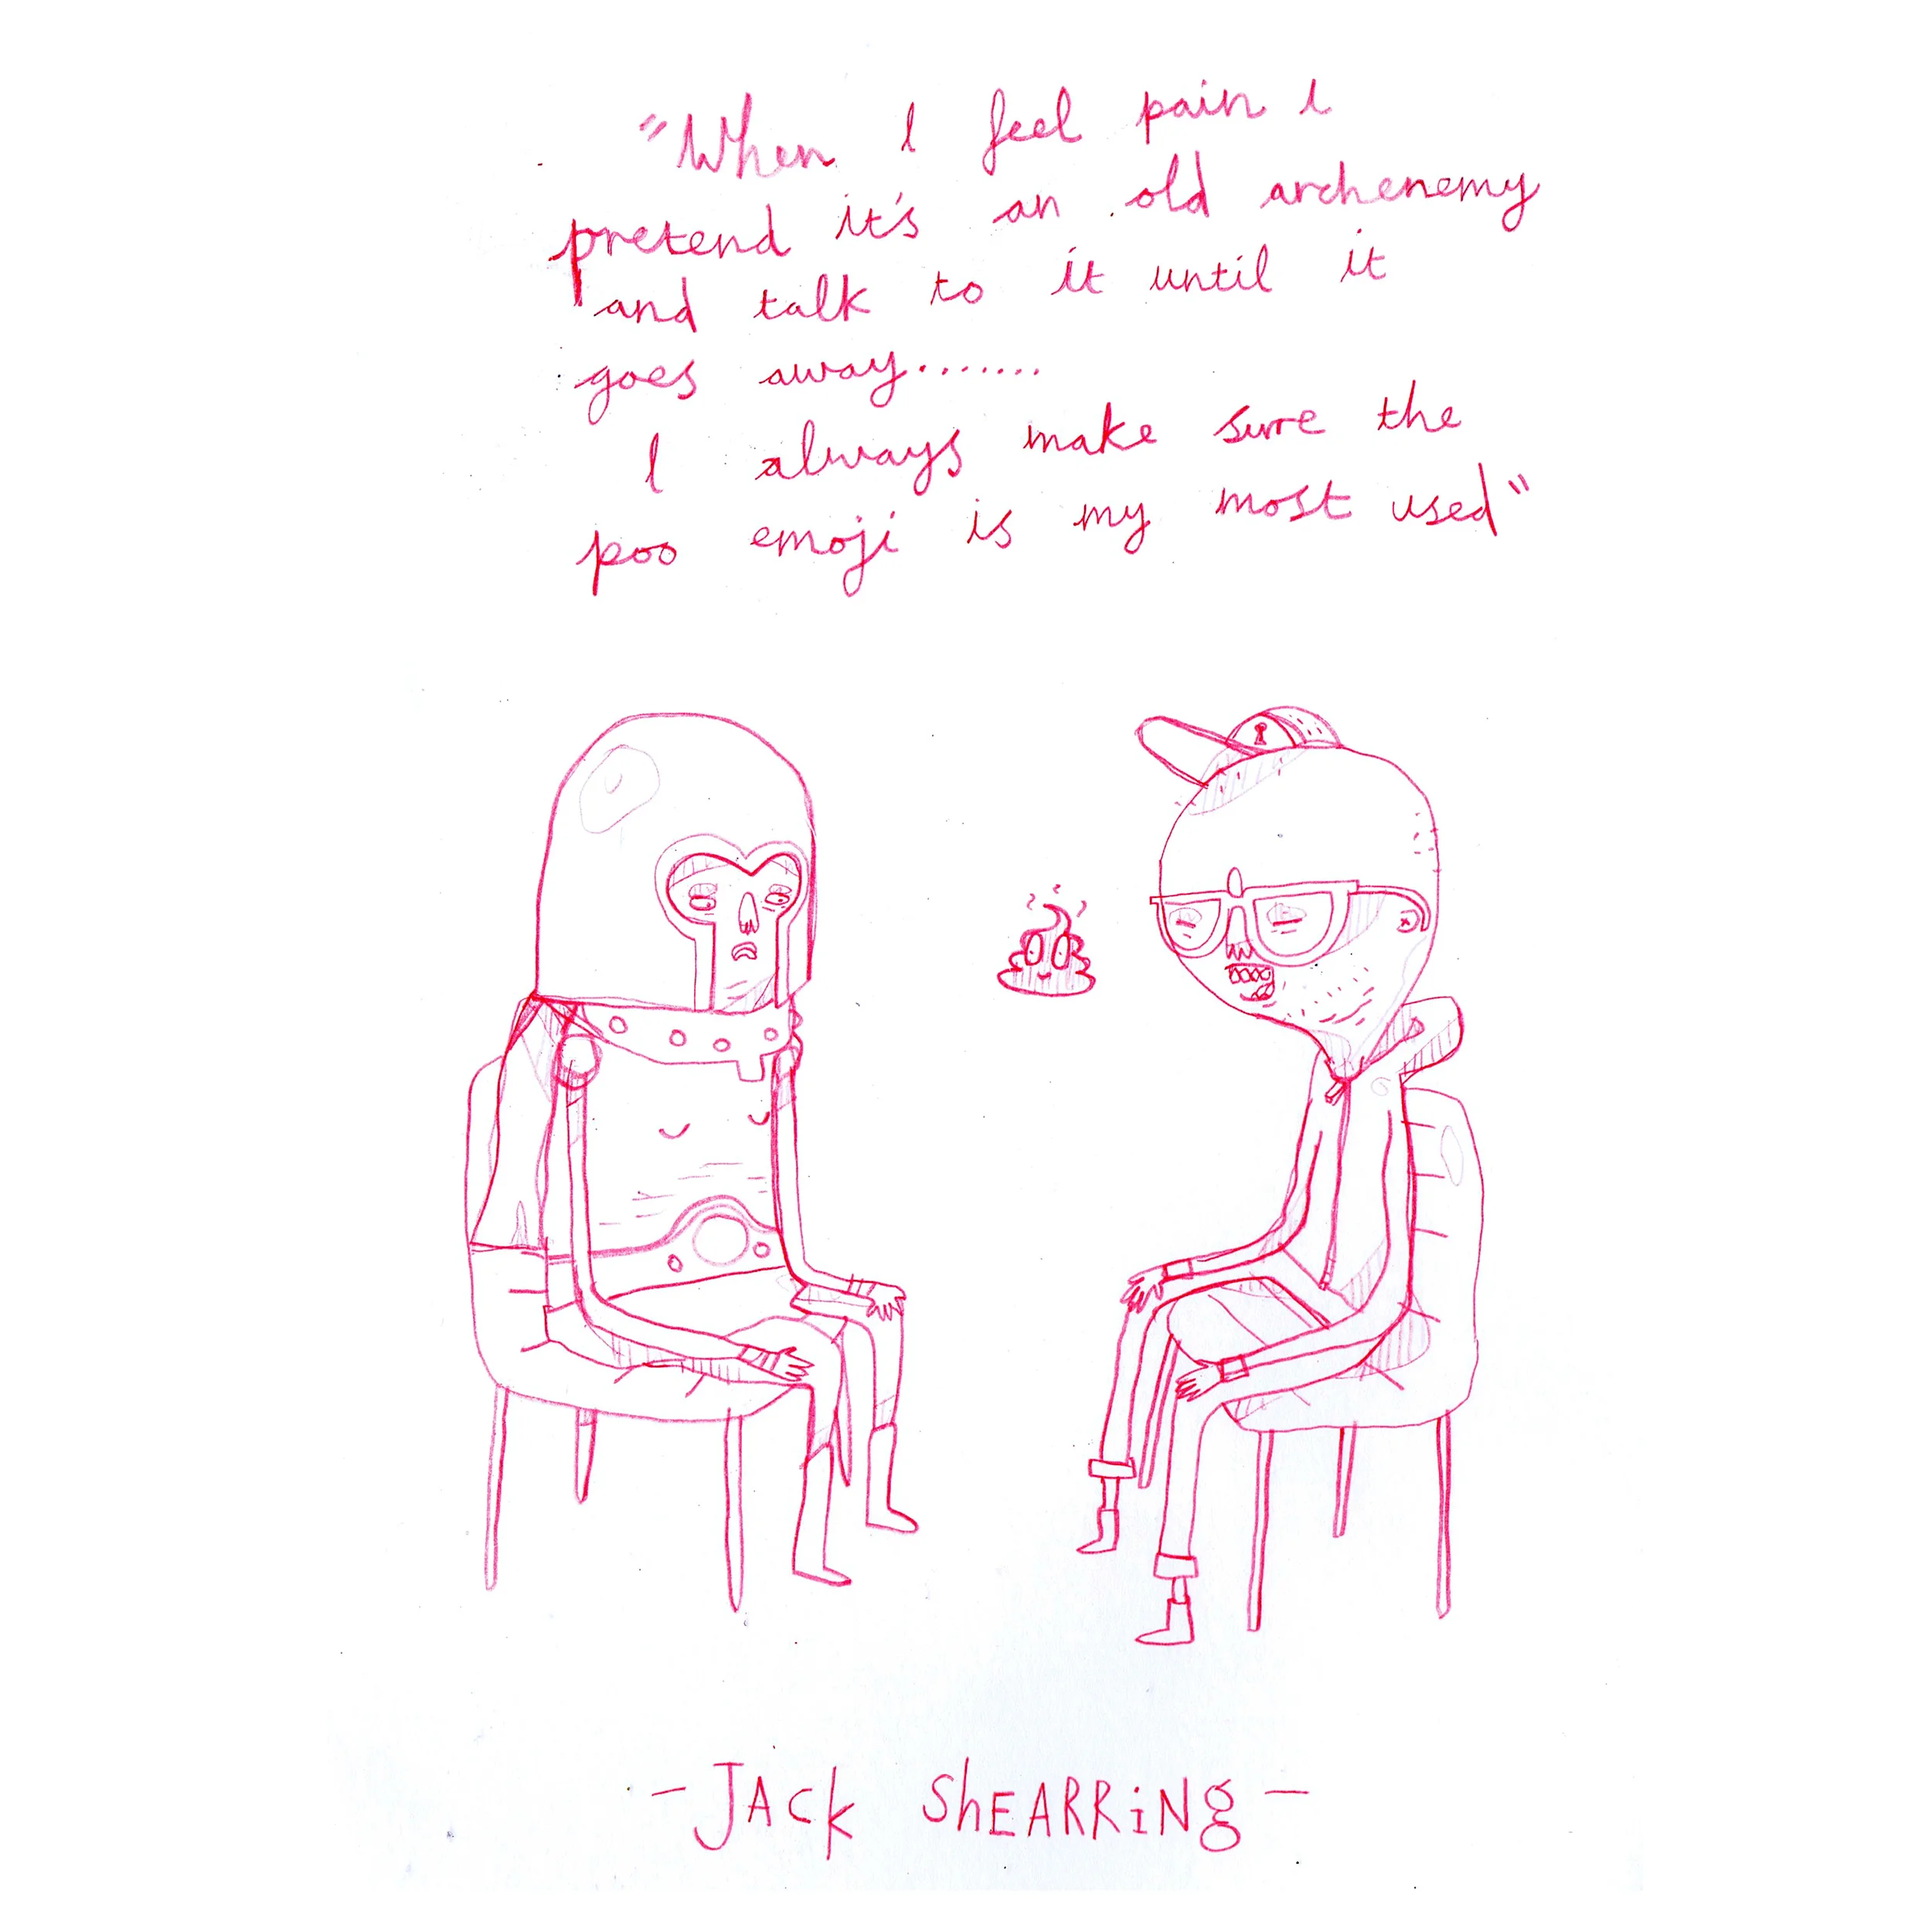 "When I feel pain I
pretend it's an old archenemy
and talk to it until it
goes away.......
I always make sure the
poo emoji is my most used"
- JAck ShEARRiNg -